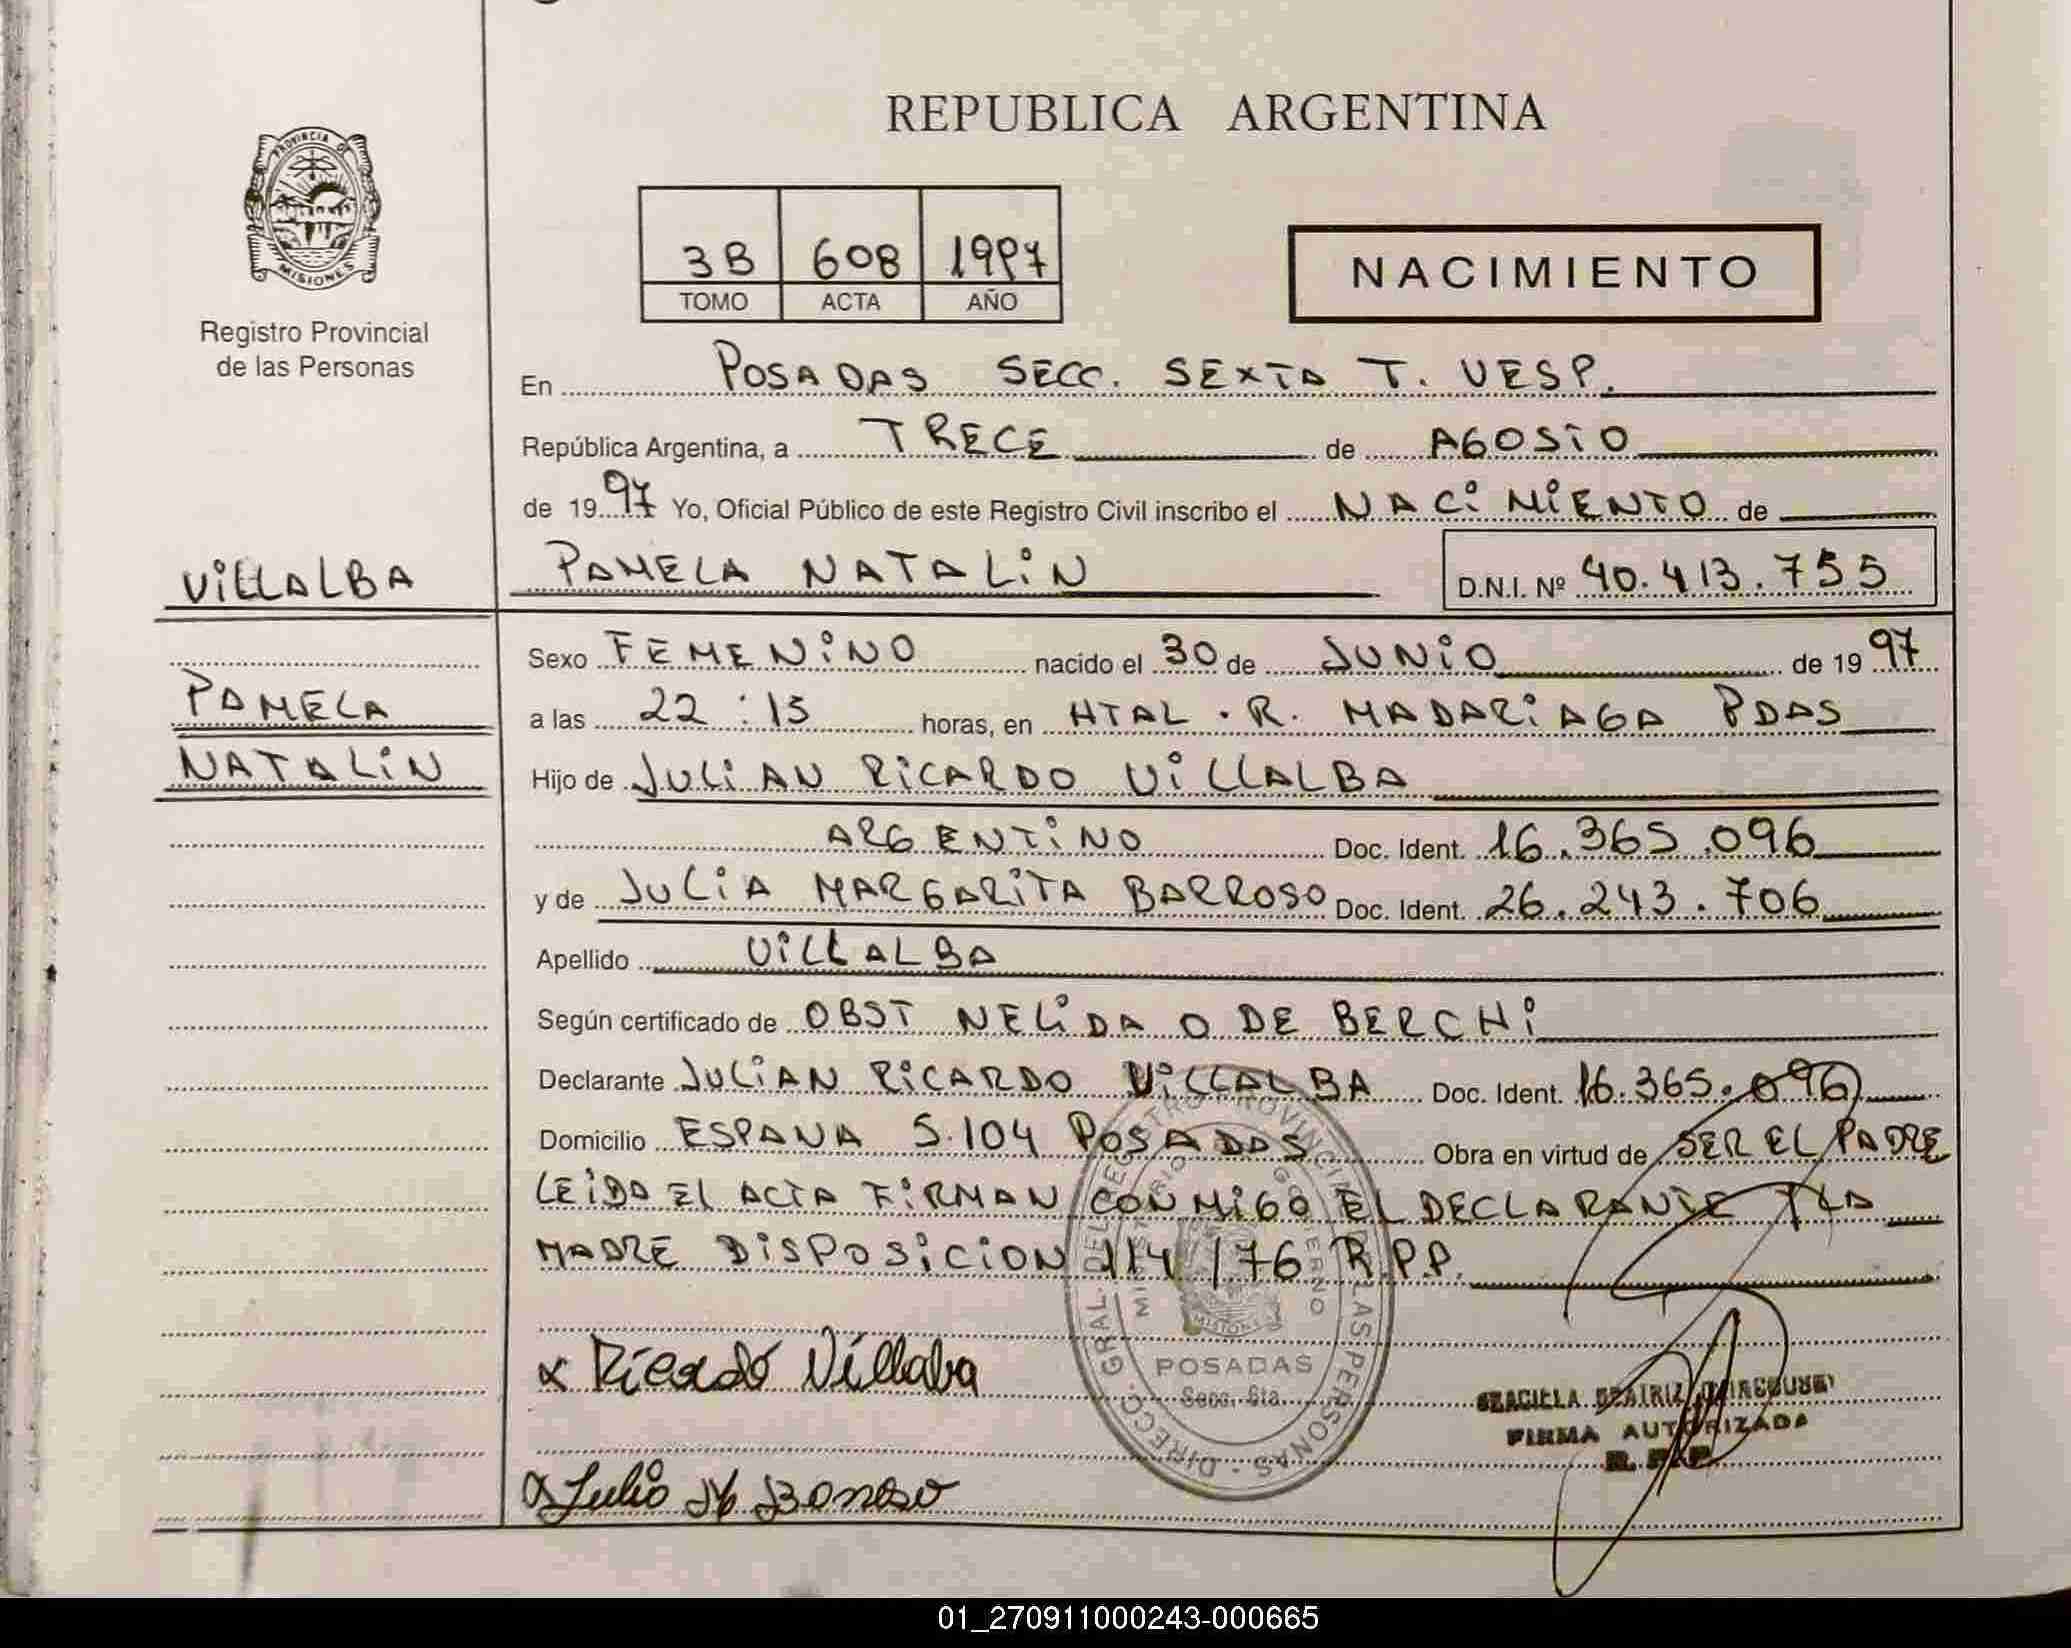 REPUBLICA ARGENTINA
PROVINCIA DE
MISIONES
Registro Provincial
de las Personas
3B 608 1997
TOMO ACTA AÑO
NACIMIENTO
En POSADAS SECC. SEXTA T. VESP.
República Argentina, a TRECE de AGOSTO
de 1997 Yo, Oficial Público de este Registro Civil inscribo el NACIMIENTO de
VILLALBA
PAMELA NATALIN D.N.I. Nº 40.413.755
Sexo FEMENINO nacido el 30 de JUNIO de 1997
PAMELA
a las 22:15 horas, en HTAL. R. MADARIAGA PDAS
NATALIN
Hijo de JULIAN RICARDO VILLALBA
ARGENTINO Doc. Ident. 16.365.096
y de JULIA MARGARITA BARROSO Doc. Ident. 26.243.706
Apellido VILLALBA
Según certificado de OBST NELIDA O DE BERCHI
Declarante JULIAN RICARDO VILLALBA Doc. Ident. 16.365.096
Domicilio ESPANA 5.104 POSADAS Obra en virtud de SER EL PADRE
LEIDO EL ACTA FIRMAN CONMIGO EL DECLARANTE Y LA
MADRE DISPOSICION 114/76 R.P.P.
DIRECC. GRAL. DEL REGISTRO PROVINCIAL DE LAS PERSONAS
MINISTERIO GOBIERNO
MISIONES
POSADAS
Secc. 6ta.
x Ricardo Villalba
GRACIELA BEATRIZ
FIRMA AUTORIZADA
R.P.P.
x Julia M Barroso
01_270911000243-000665